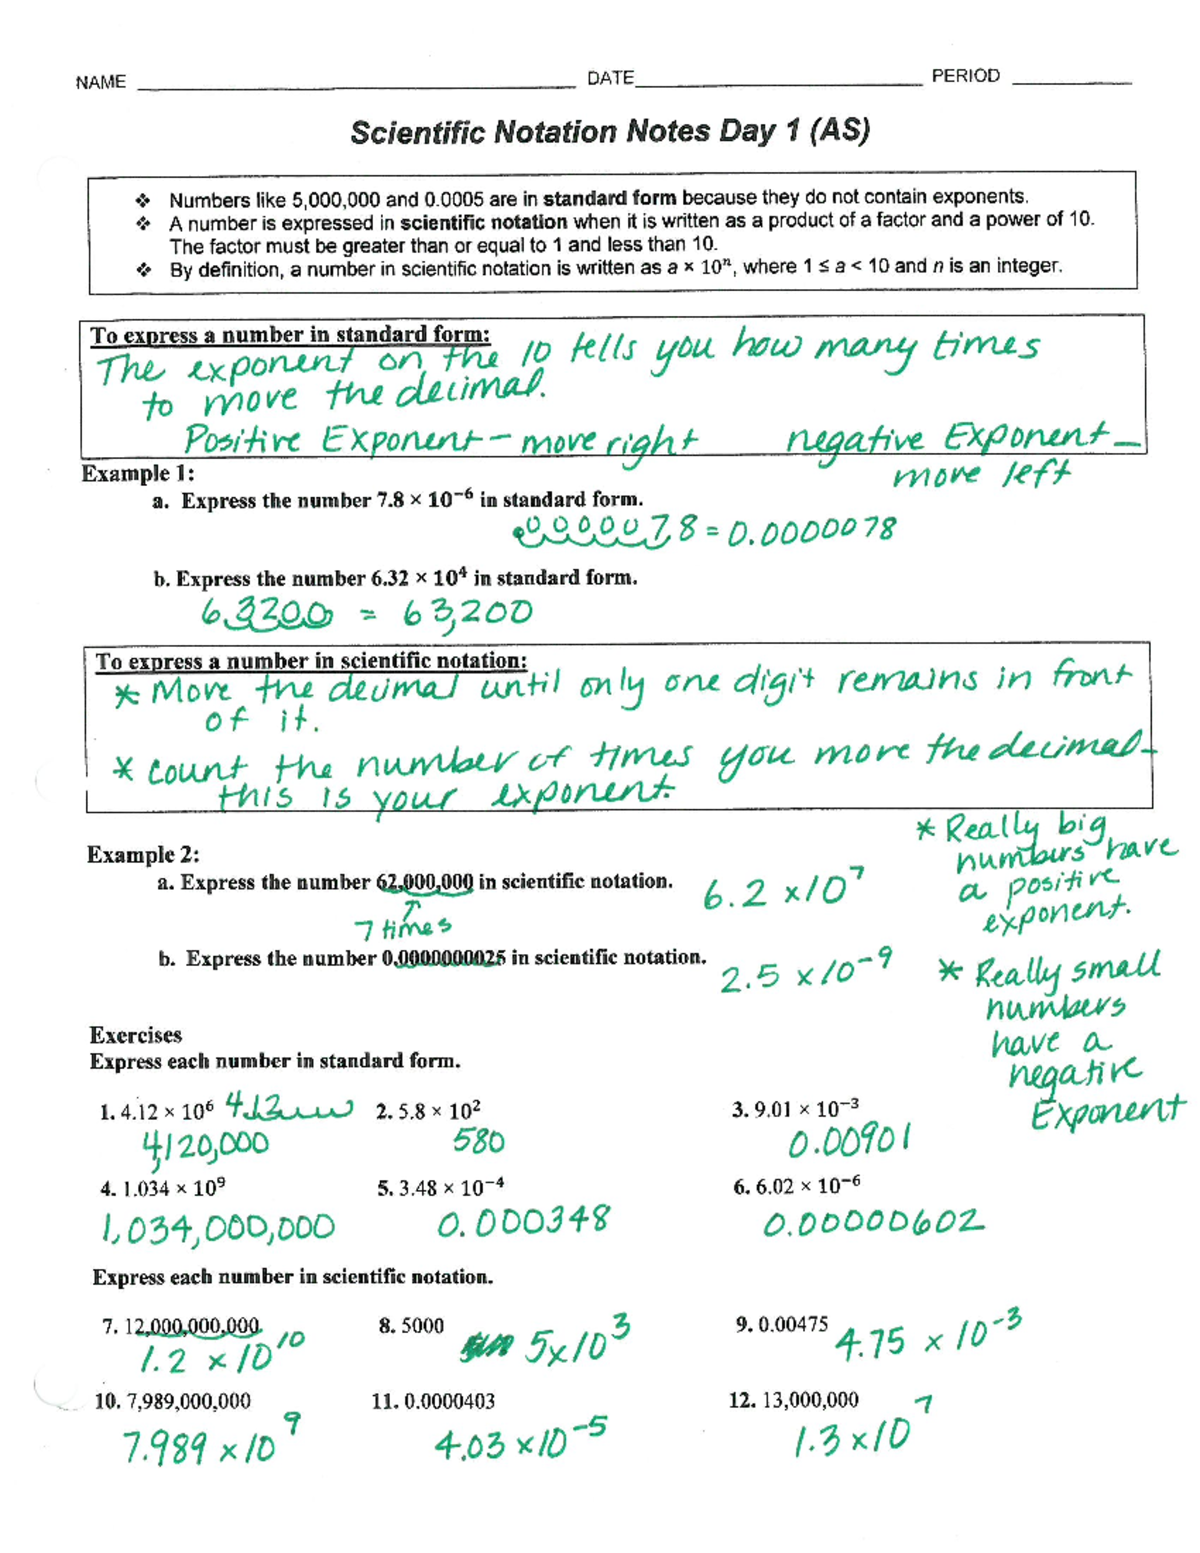 NAME ______ DATE ______ PERIOD ______
Scientific Notation Notes Day 1 (AS)
❖ Numbers like 5,000,000 and 0.0005 are in standard form because they do not contain exponents.
❖ A number is expressed in scientific notation when it is written as a product of a factor and a power of 10.
The factor must be greater than or equal to 1 and less than 10.
❖ By definition, a number in scientific notation is written as a × 10ⁿ, where 1 ≤ a < 10 and n is an integer.
To express a number in standard form:
The exponent on the 10 tells you how many times
to move the decimal.
Positive Exponent - move right negative Exponent -
move left
Example 1:
a. Express the number 7.8 × 10⁻⁶ in standard form.
0000078 = 0.0000078
b. Express the number 6.32 × 10⁴ in standard form.
63200 = 63,200
To express a number in scientific notation:
* Move the decimal until only one digit remains in front
of it.
* count the number of times you more the decimal -
this is your exponent.
Example 2:
a. Express the number 62,000,000 in scientific notation. 6.2 x10⁷
7 times
b. Express the number 0.0000000025 in scientific notation. 2.5 x10⁻⁹
* Really big
numburs have
a positive
exponent.
* Really small
numbers
have a
negative
Exponent
Exercises
Express each number in standard form.
1. 4.12 × 10⁶ 4.12 2. 5.8 × 10² 3. 9.01 × 10⁻³
4,120,000 580 0.00901
4. 1.034 × 10⁹ 5. 3.48 × 10⁻⁴ 6. 6.02 × 10⁻⁶
1,034,000,000 0.000348 0.00000602
Express each number in scientific notation.
7. 12,000,000,000 8. 5000 9. 0.00475
1.2 x10¹⁰ 5x10³ 4.75 x 10⁻³
10. 7,989,000,000 11. 0.0000403 12. 13,000,000
7.989 x10⁹ 4.03 x10⁻⁵ 1.3 x10⁷